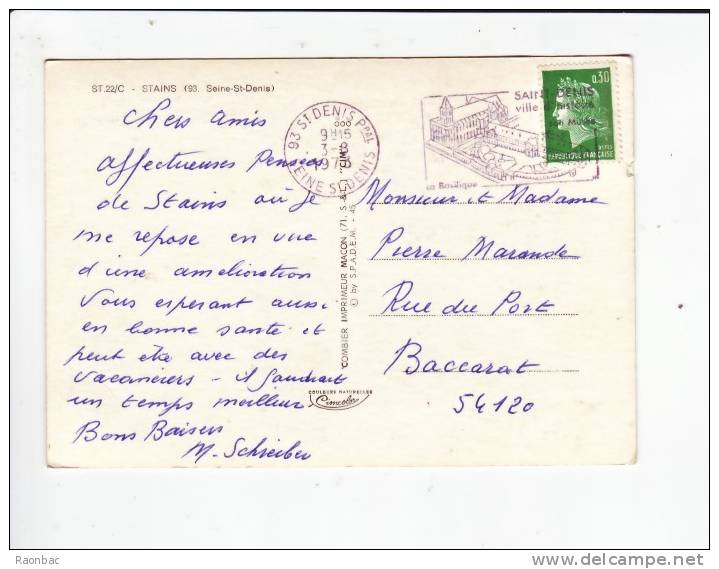 ST.22/C - STAINS (93. Seine-St-Denis)
Chers amis
affectueuses Pensées
de Stains où je
me repose en vue
d'une amelioration
Vous esperant aussi
en bonne santé et
peut être avec des
vacanciers - il faudrait
un temps meilleur.
Bons Baisers
M. Schreiber
93 ST DENIS Ppal
SEINE ST DENIS
SAINT DENIS
ville d'histoire
sa Basilique
0,30
REPUBLIQUE FRANÇAISE
COMBIER IMPRIMEUR MACON (71, S.-&-L.) "CIM"
© by S.P.A.D.E.M. - 45
COULEURS NATURELLES
Cimcolor
Monsieur et Madame
Pierre Marande
Rue du Port
Baccarat
54120
Raonbac
delcampe.net